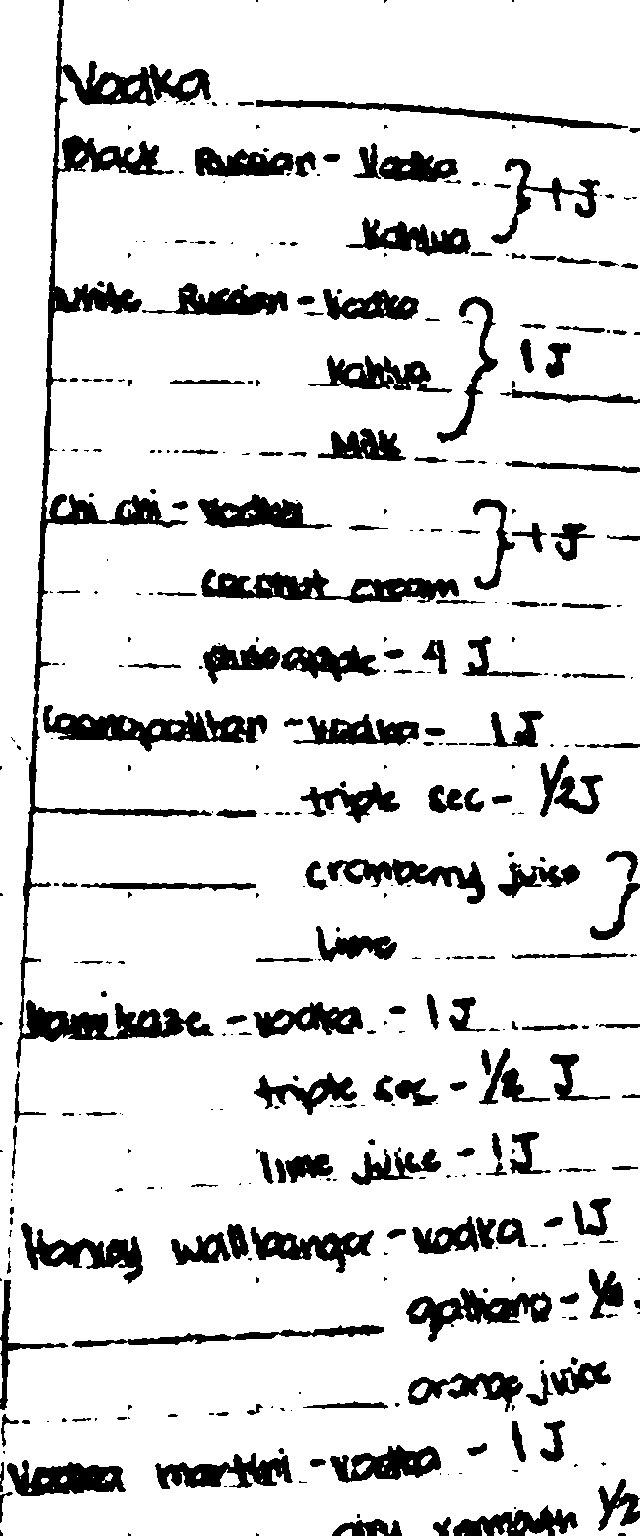 Vodka
Black Russian - Vodka } 1 J
Kahlua
White Russian - Vodka
Kahlua } 1 J
Milk
Chi chi - Vodka } 1 J
coconut cream
pineapple - 4 J
Cosmopolitan - Vodka - 1 J
triple sec - 1/2 J
cranberry juice }
lime
Kamikaze - vodka - 1 J
triple sec - 1/2 J
lime juice - 1 J
Harvey wallbanger - vodka - 1 J
galliano - 1/2
orange juice
Vodka martini - vodka - 1 J
1/2